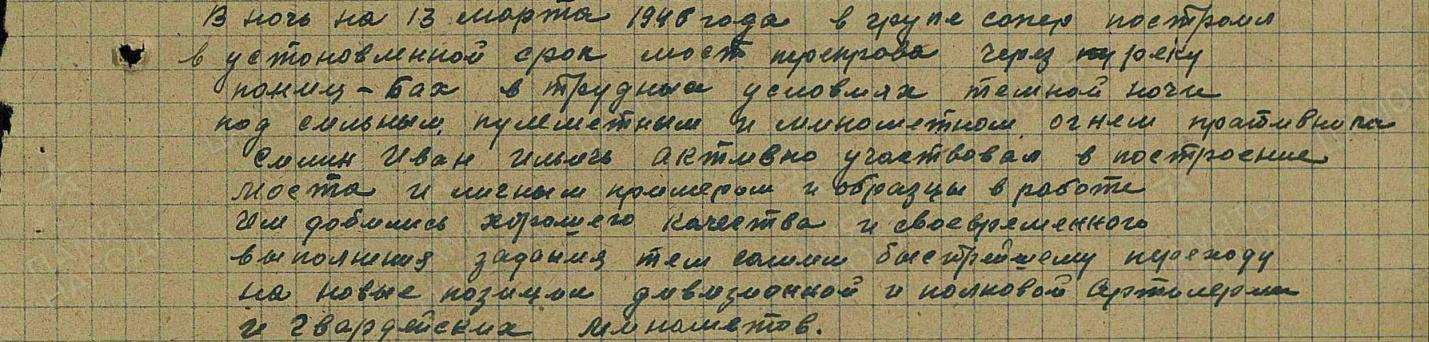 В ночь на 13 марта 1945 года в групе сапер построил
в установленной срок мост переправа через реку
пониц-Бах в трудных условиях темной ночи
под сильным пулеметным и минометном огнем пративника
Силин Иван Ильичь активно участвовал в построение
моста и личным примером и образцы в работе
чем добились хорошего качества и своевременного
выполнения задания тем самим быстрейшему переходу
на новые позиции дивизионной и полковой артилерии
и гвардейских минометов.